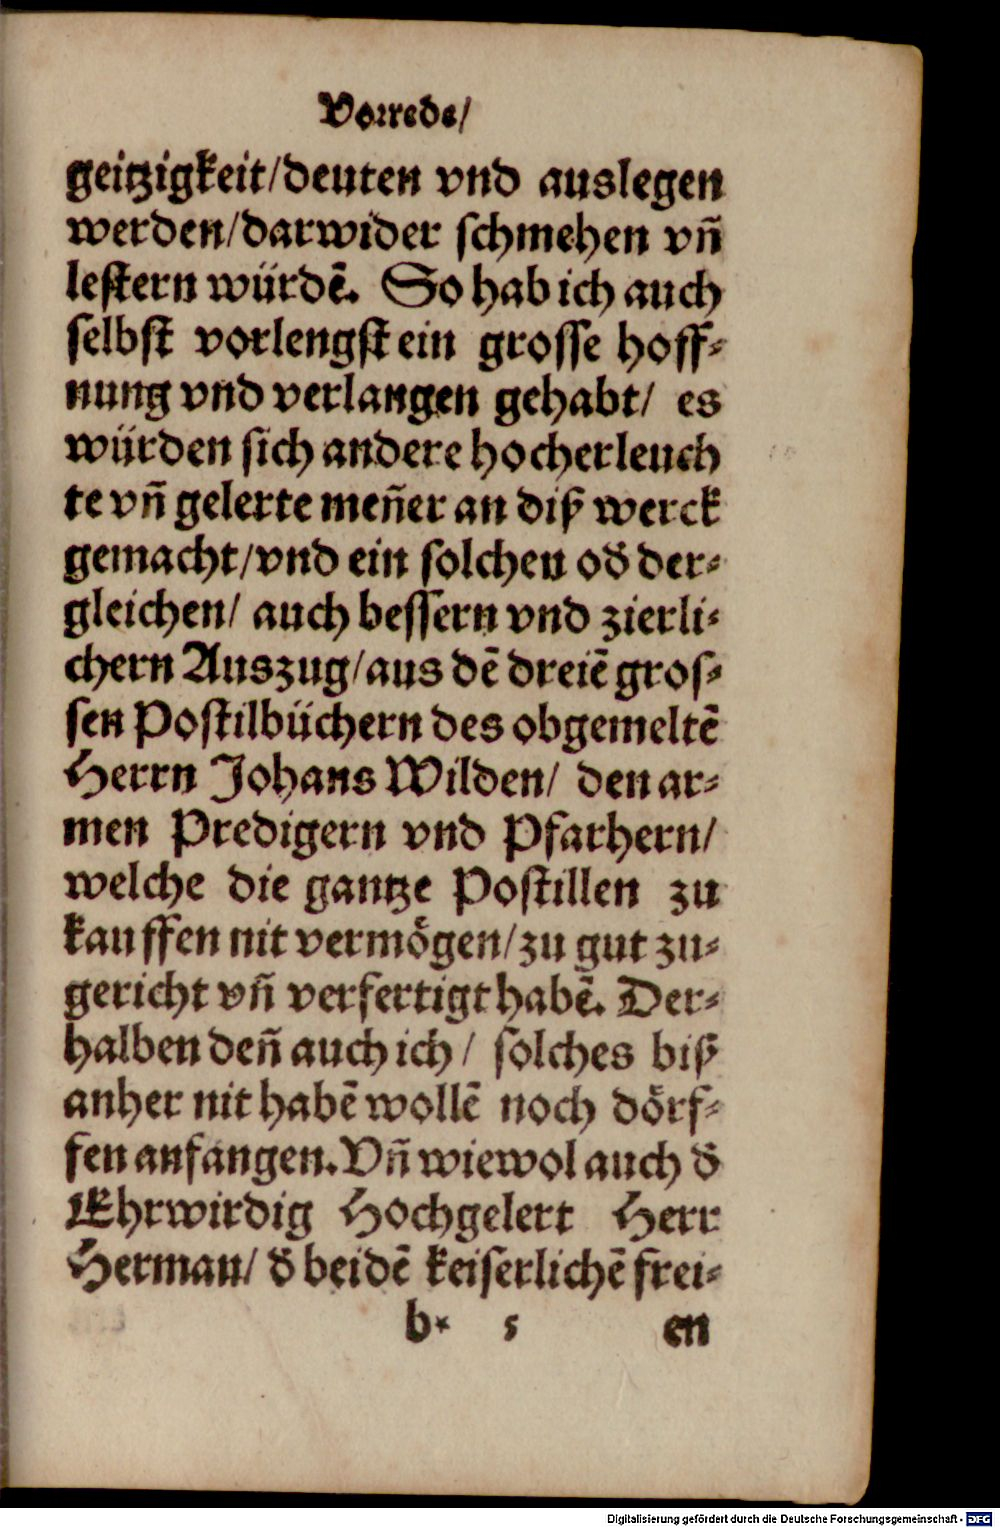 Vorrede/
geitzigkeit/deuten vnd auslegen
werden/darwider schmehen vñ
lestern würdē. So hab ich auch
selbst vorlengst ein grosse hoff⸗
nung vnd verlangen gehabt/ es
würden sich andere hocherleuch
te vñ gelerte meñer an diß werck
gemacht/vnd ein solchen od̓ der⸗
gleichen/ auch bessern vnd zierli⸗
chern Auszug/aus dē dreiē gros⸗
sen Postilbüchern des obgemeltē
Herrn Johans Wilden/ den ar⸗
men Predigern vnd Pfarhern/
welche die gantze Postillen zu
kauffen nit vermögen/zu gut zu⸗
gericht vñ verfertigt habē. Der⸗
halben deñ auch ich/ solches biß
anher nit habē wollē noch dörf⸗
fen anfangen. Vñ wiewol auch d̓
Ehrwirdig Hochgelert Herr
Herman/ d̓ beidē keiserlichē frei⸗
b* 5 en
Digitalisierung gefördert durch die Deutsche Forschungsgemeinschaft - DFG